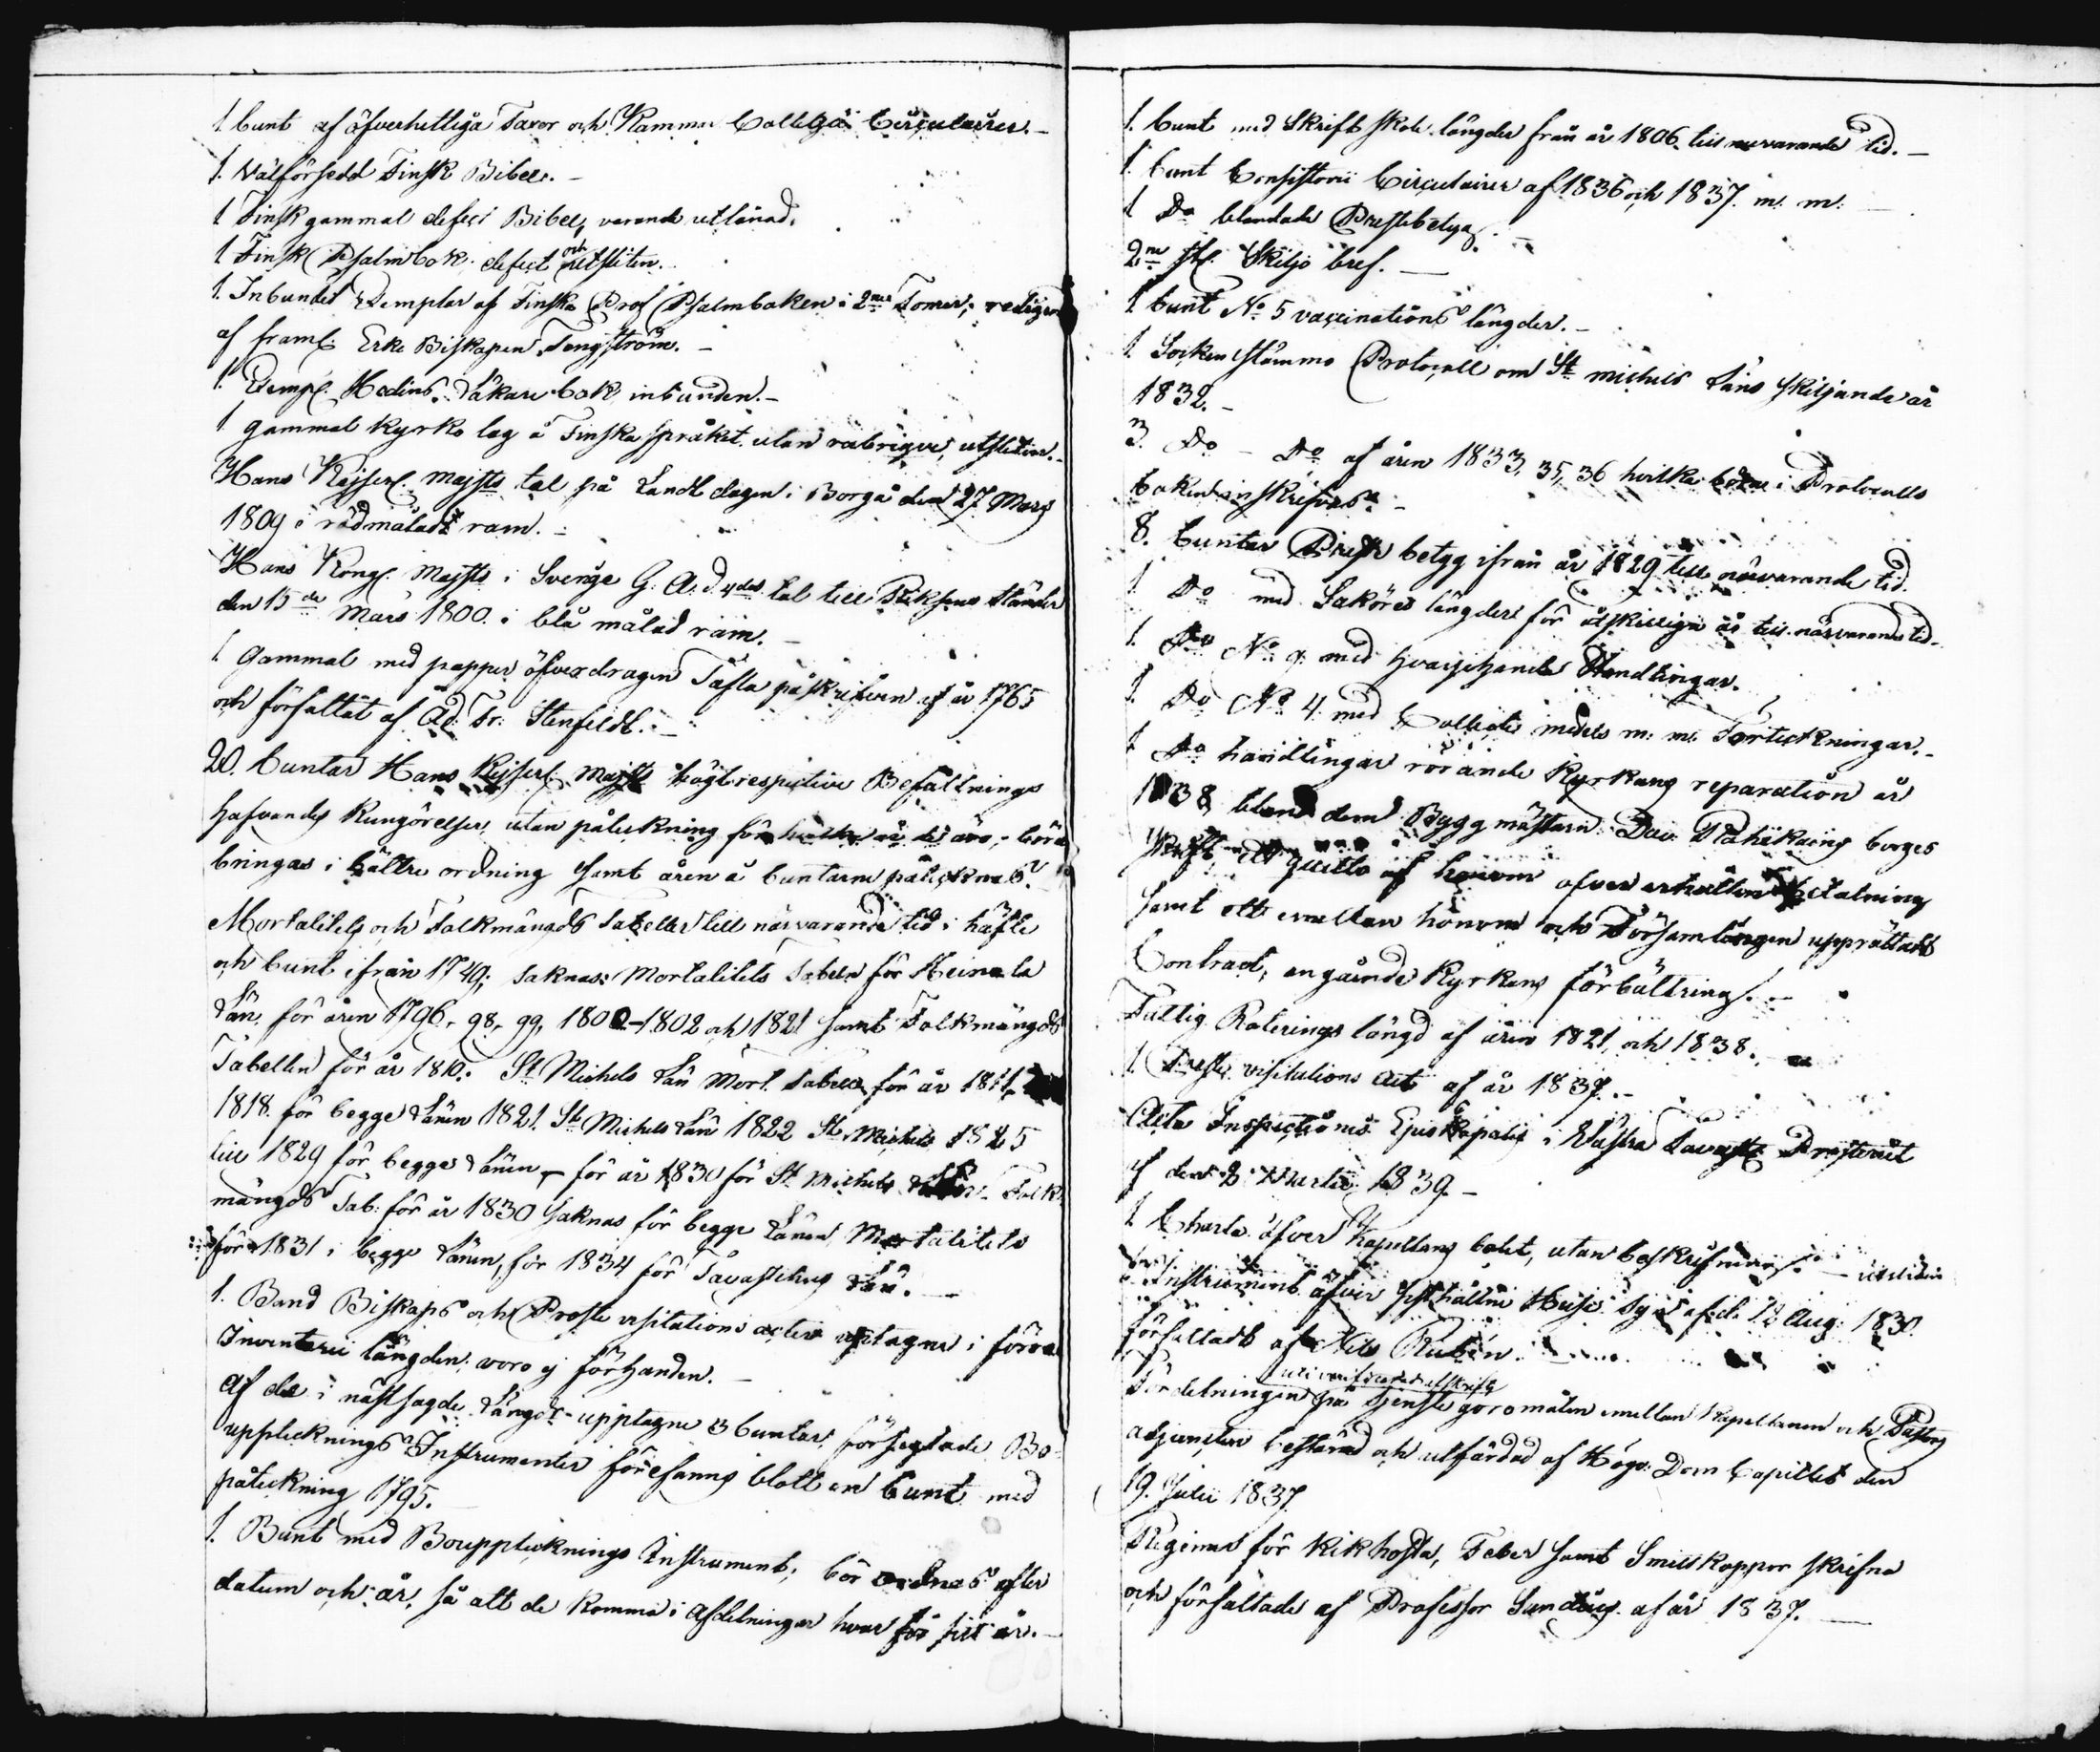 1. bunt af öfverhettliga Taxor och Kammar Collegii Circulairer. -
1. Välförsedd Finsk Bibel. -
1 Finsk gammal defect Bibel, varande utlånad.
1 Finsk Psalmbok defect och utsliten.
1. Inbundet Exemplar af Finska Prof Psalmboken i 2ne Tomer, redigerad
af framl. Erke Biskopen Tengström. -
1. Exempl. Hedins Läkare bok inbunden. -
1 gammal Kyrko lag å Finska språket utan rubriqve, utsliten. -
Hans Kejserl. Majsts tal på Landtdagen i Borgå den 27 Mars
1809 i rödmålad ram. -
Hans Kongl. Majsts i Sverige G. A. d. 4des tal till Riksens Ständer
den 15de Mars 1800. i blå målad ram. -
1. Gammal med papper öfverdragen Tafla påskrifven af år 1765
och författat af Ad. Fr. Stenfeldt. -
20. buntar Hans Kejserl. Majsts högtrespective Befallnings
hafvandes Kungörelser, utan påteckning för hvilka år de äro, - böra
bringas i bättre ordning samt åren å buntarne påtecknas.
Mortalitets och Folkmängds Tabeller till närvarande tid i häfte
och bunt ifrån 1749; saknas: Mortalitets Tabeln för Heinola
Län, för åren 1796, 98, 99, 1800-1802 och 1821 samt Folkmängds
Tabellen för år 1810. St Michels Län Mort. Tabell för år 1811,
1818. för begge Länen 1821. St Michels Län 1822 St Michels 1825
till 1829 för begge Länen, - för år 1830 för St Michels Län. Folk-
mängds Tab: för år 1830 saknas för begge Länen Mortalitets
för 1831 i begge Länen, för 1834 för Tavastehus Län. -
1. Band Biskops och Proste visitations acter uptagne i förra
Inventarii längden, voro ej förhanden. -
Af de i nästsagde Längd upptagne 3 buntar förseglade Bo-
upptecknings Instrumenter förefanns blott en bunt med
påteckning 1795. -
1. Bunt med Bouppteknings Instrument; bör ordnas efter
datum och år, så att de komma i afdelningar hvar för sitt år. -
1. bunt med Skriftskole längder från år 1806 till nuvarande tid. -
1. bunt Consistorii Circulairer af 1836 och 1837. m. m. -
1 Do blandade Prestbetyg. -
2ne st. Skiljobref. -
1 bunt No 5 vaccinations längder. -
1. Sockenstämmo Protocoll om St Michels Läns skiljande år
1832. -
3. Do - Do af åren 1833, 35, 36 hvilka böra i Protocolls
boken inskrifvas. -
8. buntar Prest betyg ifrån år 1829 till närvarande tid.
1 Do med Saköres längder för åtskillige år till närvarande tid. -
1. Do No 9. med hvarjehanda Handlingar.
1. Do No 4. med Collecte medels m. m. Förteckningar. -
1 Do handlingar rörande Kyrkans reparation år
1838, bland dem Byggmästarn Dav. Rahikains borges
skrift, ett quitto af honom öfver erhållen betalning
samt ett emellan honom och Församlingen upprättadt
Contract, angående Kyrkans förbättring. -
Fattig Roterings längd af åren 1821, och 1838. -
1. Proste visitations Act af år 1837. -
Acta Inspectionis Episcopalis i Västra Tavast Prosteriet
af den 2 Martii 1839. -
1 Charta öfver Kapellans bolet, utan beskrifning. - utsliten
Instrument öfver hållne Huse syn af d. 12 Aug: 1830.
författadt af Nils Rubén.
i verificerad afskrift
Fördelningen på tjenste göromålen emellan Kapellanen och Pastors
adjuncten bestämd och utfärdad af Högv. Dom Capitlet den
19. Julii 1837.
Regimer för Kikhosta, Feber samt Smittkoppor skrifna
och författade af Professor Sundius af år 1837. -